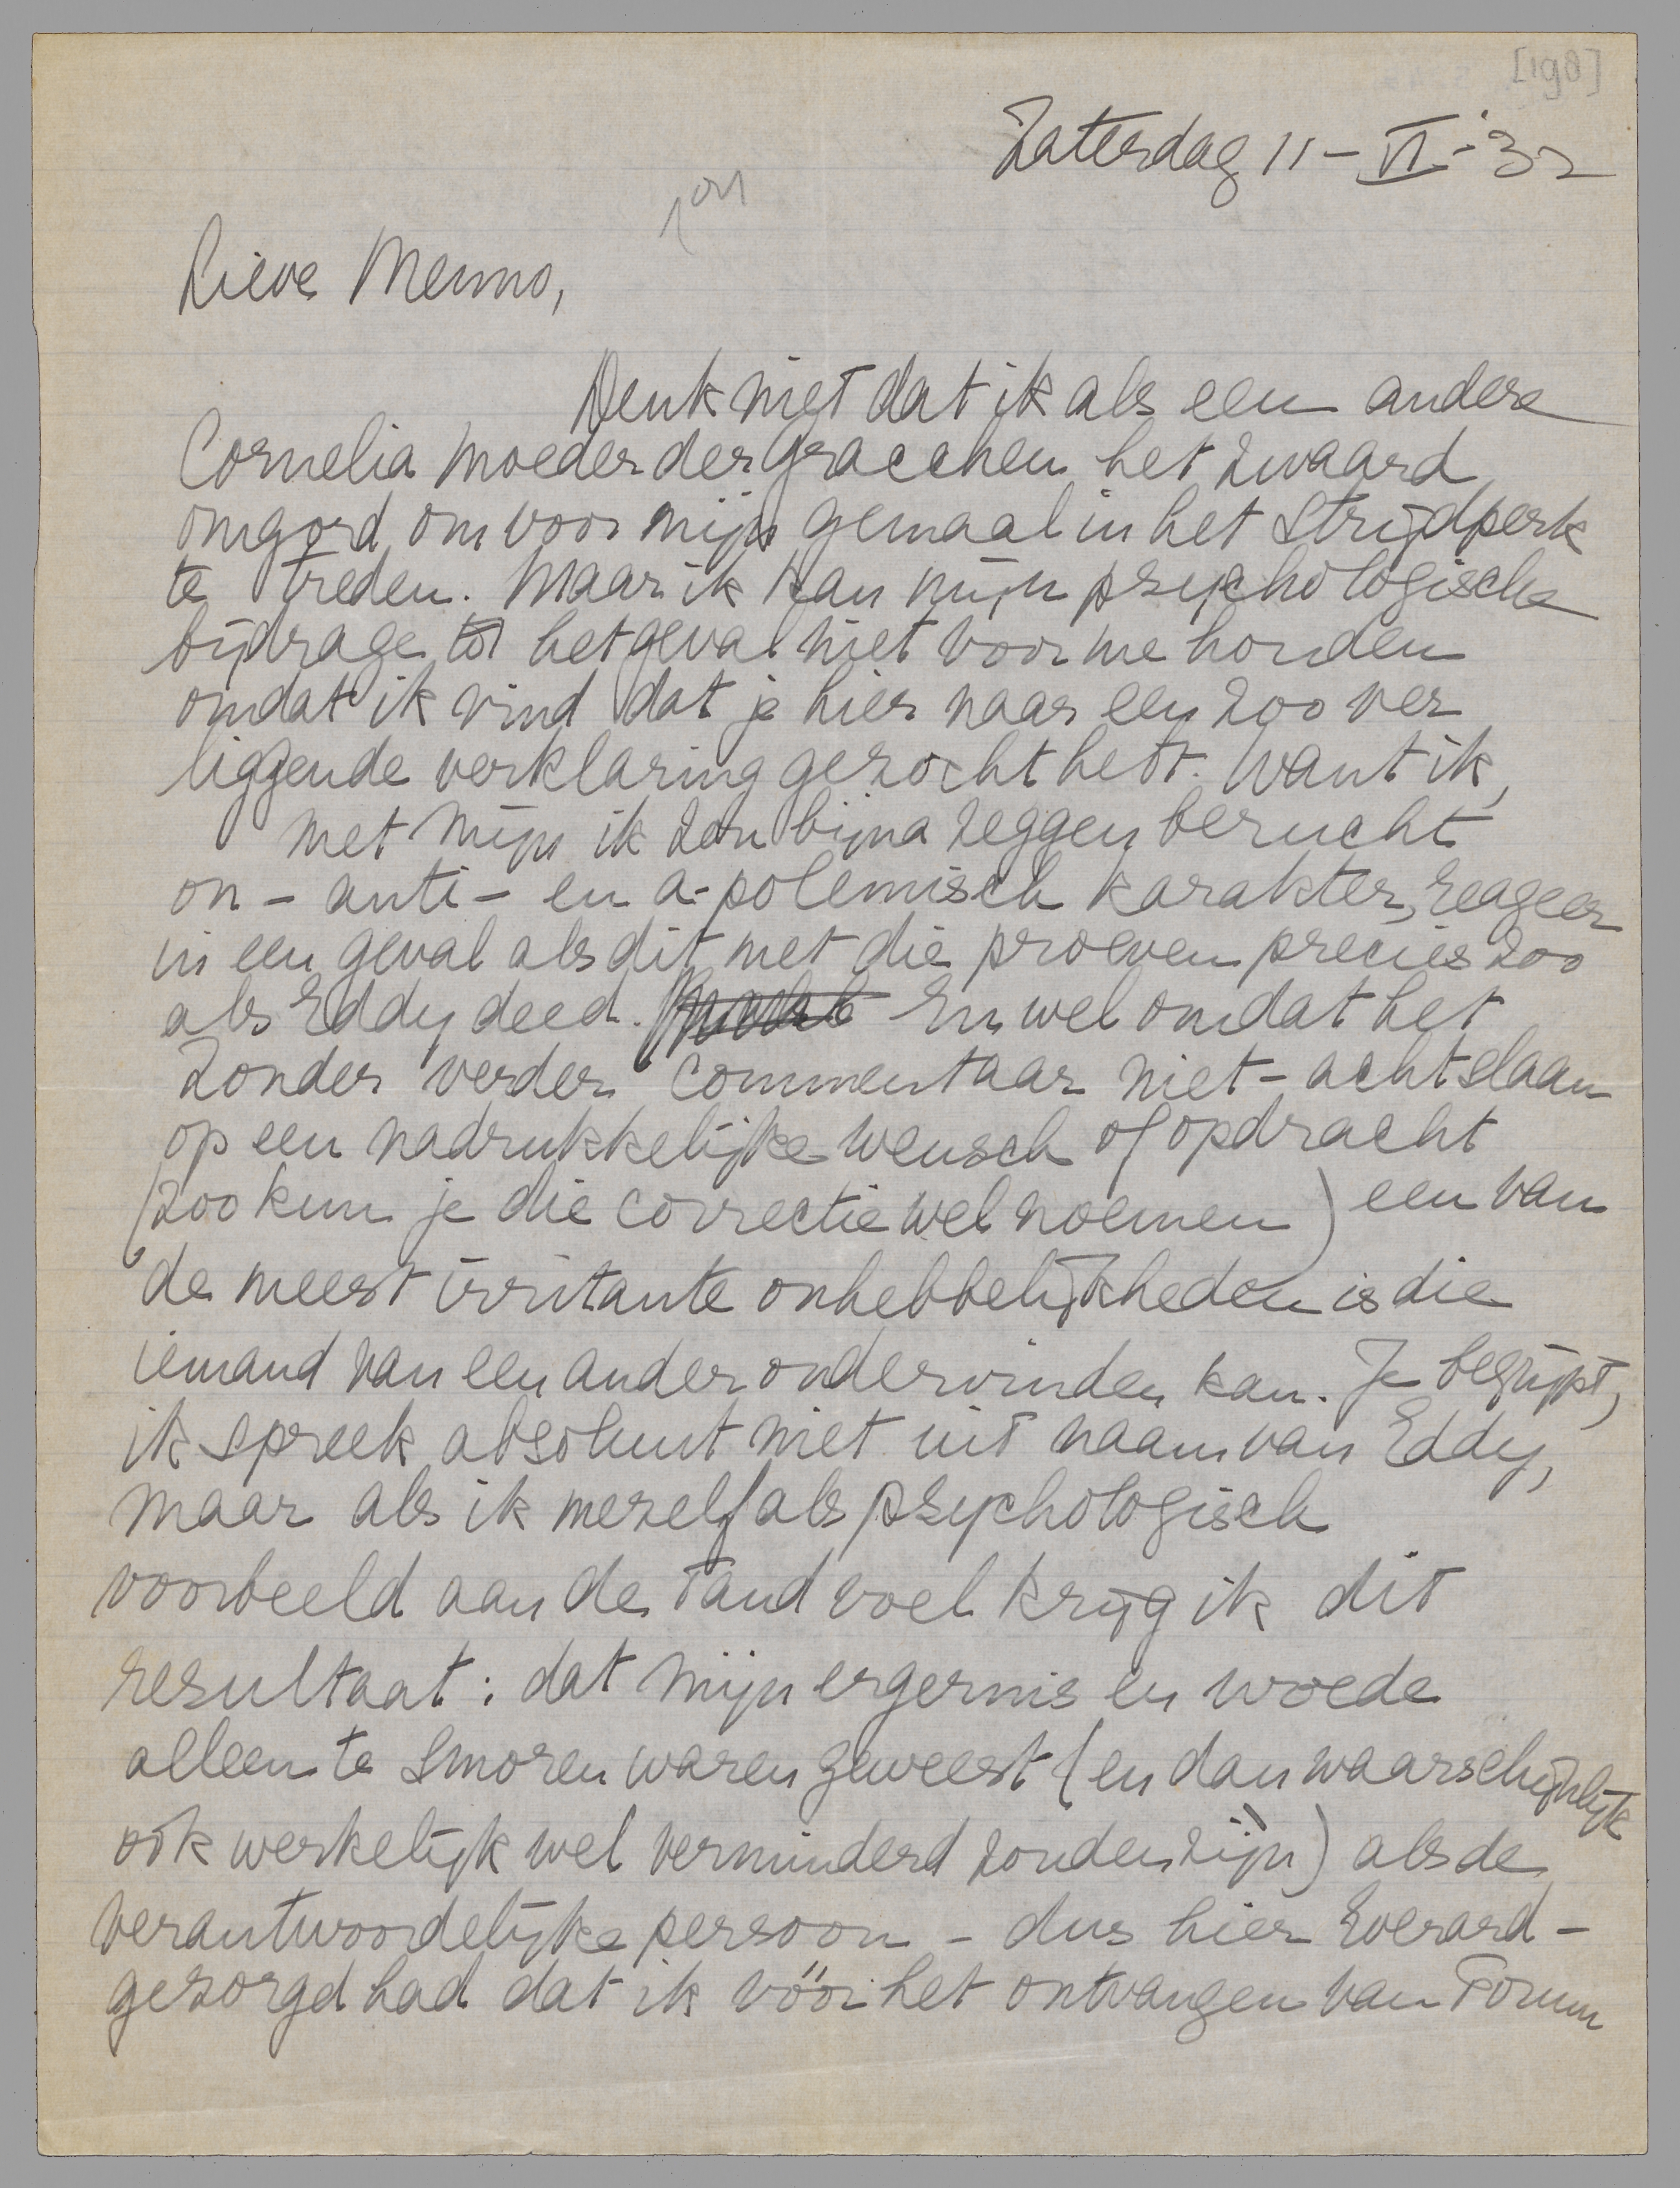 [198]
Zaterdag 11-VI-'32
Lieve Menno,
Denk niet dat ik als een andere
Cornelia moeder der Gracchen het zwaard
omgord om voor mijn gemaal in het strijdperk
te treden. Maar ik kan mijn psychologische
bijdrage tot het geval niet voor me houden
omdat ik vind dat je hier naar een zoo ver
liggende verklaring gezocht hebt. Want ik,
met mijn ik zou bijna zeggen berucht
on- anti- en a-polemisch karakter, reageer
in een geval als dit met die proeven precies zoo
als Eddy deed. En wel omdat het
zonder verder commentaar niet-achtslaan
op een nadrukkelijke wensch of opdracht
(zoo kun je die correctie wel noemen) een van
de meest irritante onhebbelijkheden is die
iemand van een ander ondervinden kan. Je begrijpt,
ik spreek absoluut niet uit naam van Eddy,
maar als ik mezelf als psychologisch
voorbeeld aan de tand voel krijg ik dit
resultaat: dat mijn ergernis en woede
alleen te smoren waren geweest (en dan waarschijnlijk
ook werkelijk wel verminderd zouden zijn) als de
verantwoordelijke persoon - dus hier Everard -
gezorgd had dat ik vóór het ontvangen van Forum